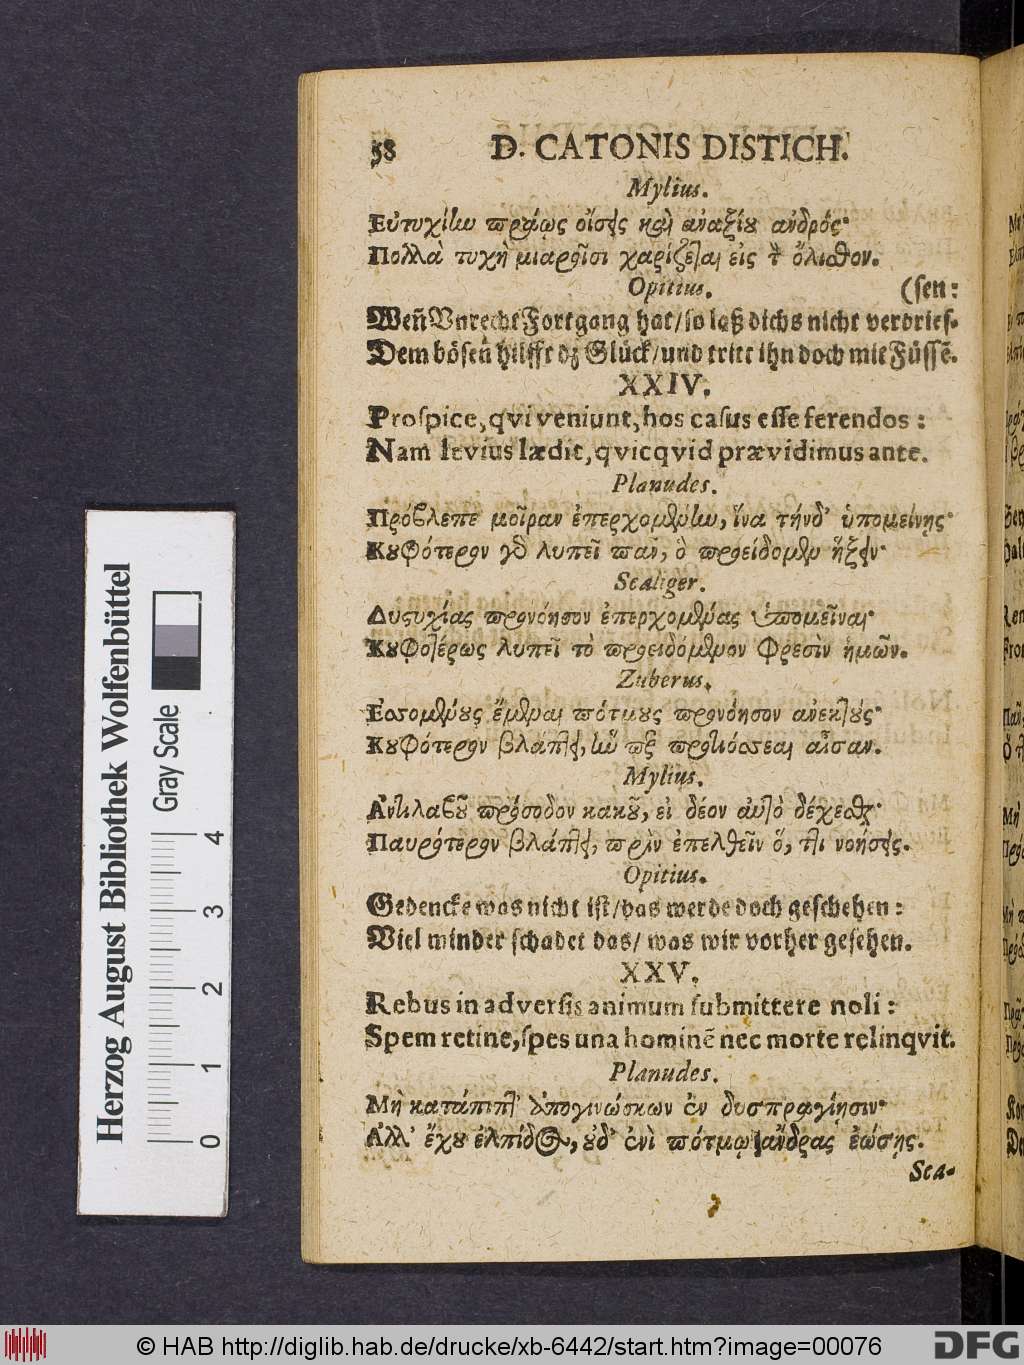 58 D. CATONIS DISTICH.
Mylius.
Εὐτυχίην πράως οἴσεις καὶ ἀναξίου ἀνδρός·
Πολλὰ τυχὴ μιαροῖσι χαρίζεται εἰς τ ὄλισθον.
Opitius. (sen:
Weñ Vnrecht Fortgang hat/ so laß dichs nicht verdries-
Dem bösen hilfft dz Glück/ und tritt ihn doch mit Füssẽ.
XXIV.
Prospice, qvi veniunt, hos casus esse ferendos:
Nam levius lædit, qvicqvid prævidimus ante.
Planudes.
Πρόβλεπε μοῖραν ἐπερχομένην, ἵνα τήνδ' ὑπομείνῃς·
Κουφότερον γὸ λυπεῖ πᾶν, ὃ προείδομεν ἥξειν·
Scaliger.
Δυστυχίας προνόησον ἐπερχομένας ὑπομεῖναι·
Κουφοτέρως λυπεῖ τὸ προειδόμενον φρεσὶν ἡμῶν.
Zuberus.
Εσσομένους ἔμεναι πότμους προνόησον ἀνεκτούς·
Κουφότερον βλάπτει, ἣν προνόσσεαι αἶσαν.
Mylius.
Ἀντιλαβοῦ πρόσοδον κακοῦ, εἰ δέον αὐτὸ δέχεσθαι·
Παυρότερον βλάπτει, πρὶν ἐπελθεῖν ὅ, τι νοήσεις.
Opitius.
Gedencke was nicht ist/ das werde doch geschehen:
Viel minder schadet das/ was wir vorher gesehen.
XXV.
Rebus in adversis animum submittere noli:
Spem retine, spes una hominẽ nec morte relinqvit.
Planudes.
Μὴ κατάπιπτ' ἀπογινώσκων ἐν δυσπραγίῃσιν·
Ἀλλ' ἔχου ἐλπίδος, οὐδ' ἐνὶ πότμῳ ἄνδρας ἐώσῃς.
Sca-
Herzog August Bibliothek Wolfenbüttel
Gray Scale
0 1 2 3 4
© HAB http://diglib.hab.de/drucke/xb-6442/start.htm?image=00076
DFG